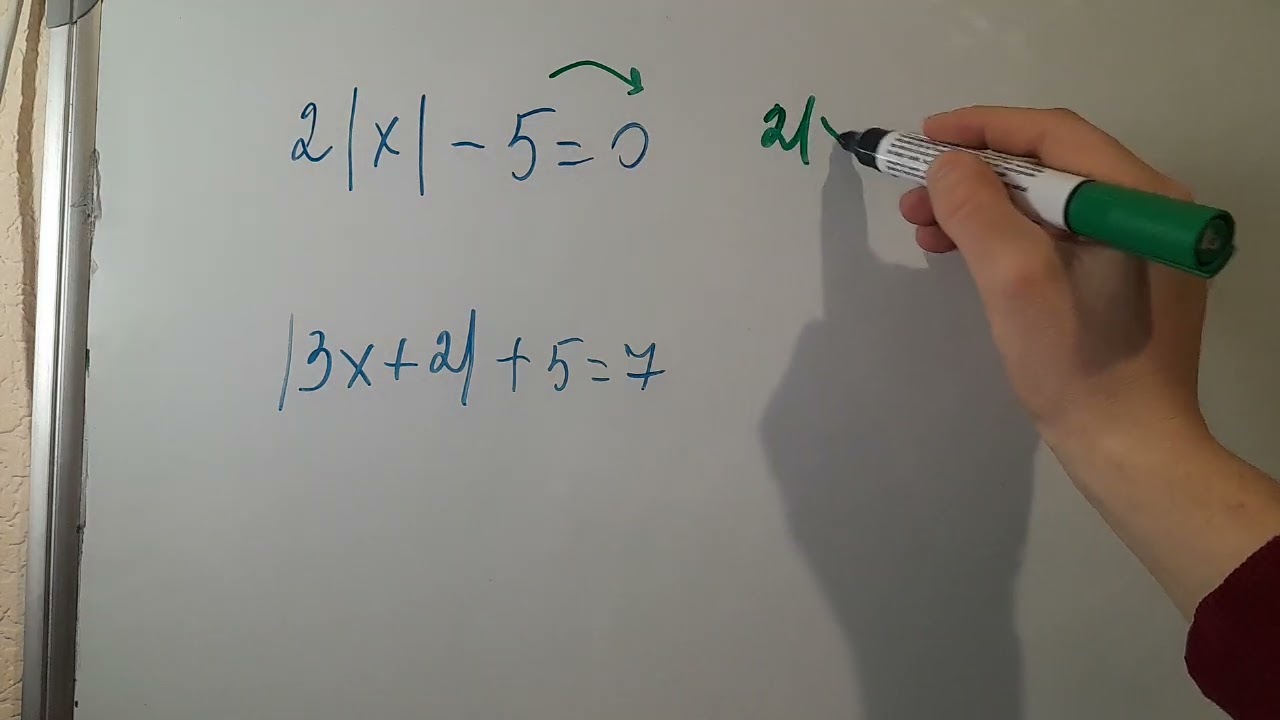 2|x| - 5 = 0
2|x
|3x + 2| + 5 = 7